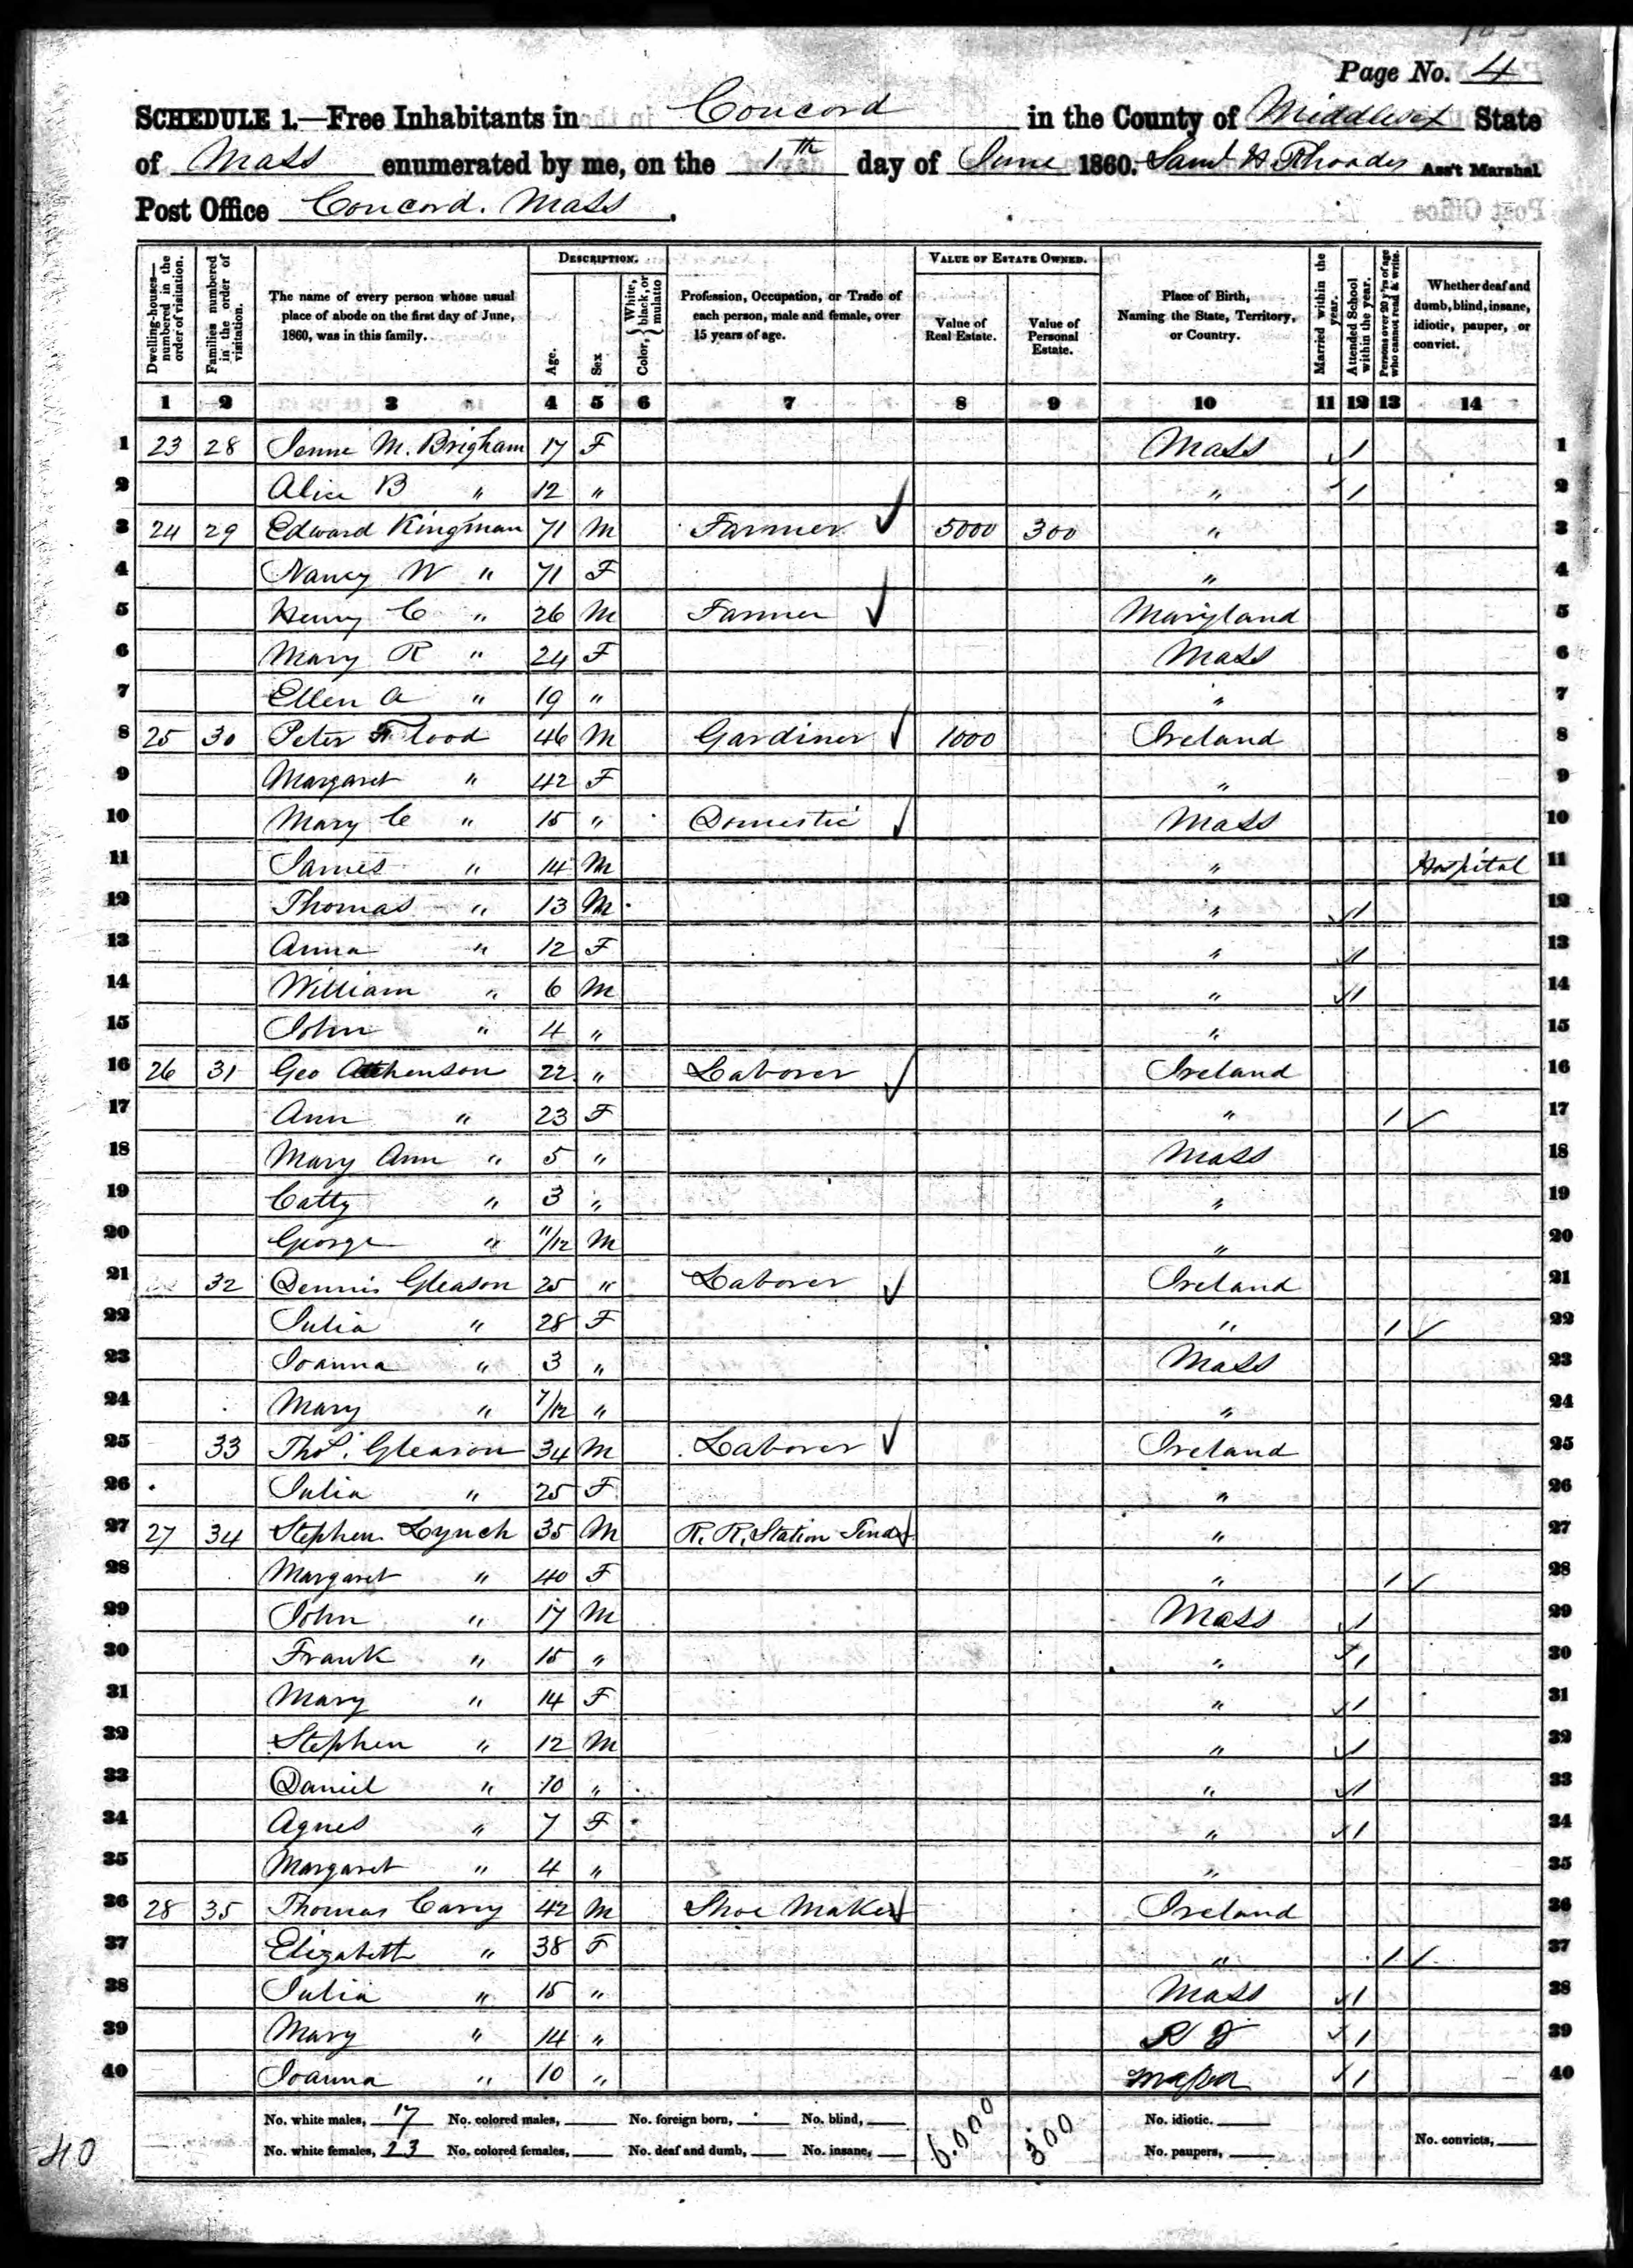 Page No. 4
SCHEDULE 1.—Free Inhabitants in Concord in the County of Middlesex State
of Mass enumerated by me, on the 1th day of June 1860. Saml H Rhoades Ass't Marshal
Post Office Concord. Mass.
DESCRIPTION. VALUE OF ESTATE OWNED.
Dwelling-houses—numbered in the order of visitation.
Families numbered in the order of visitation.
The name of every person whose usual place of abode on the first day of June, 1860, was in this family.
Age.
Sex
Color, { White, black, or mulatto
Profession, Occupation, or Trade of each person, male and female, over 15 years of age.
Value of Real Estate.
Value of Personal Estate.
Place of Birth, Naming the State, Territory, or Country.
Married within the year.
Attended School within the year.
Persons over 20 y'rs of age who cannot read & write.
Whether deaf and dumb, blind, insane, idiotic, pauper, or convict.
1 2 3 4 5 6 7 8 9 10 11 12 13 14
1 23 28 Jenne M. Brigham 17 F Mass ✓ 1 1
2 Alice B " 12 " " ✓ 1 2
3 24 29 Edward Kingman 71 M Farmer ✓ 5000 300 " 3
4 Nancy W " 71 F " 4
5 Henry C " 26 M Farmer ✓ Maryland 5
6 Mary R " 24 F Mass 6
7 Ellen A " 19 " " 7
8 25 30 Peter Flood 46 M Gardiner ✓ 1000 Ireland 8
9 Margaret " 42 F " 9
10 Mary C " 15 " Domestic ✓ Mass 10
11 James " 14 M " Hospital 11
12 Thomas " 13 M " ✓ 1 12
13 Anna " 12 F " ✓ 1 13
14 William " 6 M " ✓ 1 14
15 John " 4 " " 15
16 26 31 Geo 22 " Laborer ✓ Ireland 16
17 Ann " 23 F " 1 ✓ 17
18 Mary Ann " 5 " Mass 18
19 Catty " 3 " " 19
20 George " 11/12 M " 20
21 32 Dennis Gleason 25 " Laborer ✓ Ireland 21
22 Julia " 28 F " 1 ✓ 22
23 Joanna " 3 " Mass 23
24 Mary " 7/12 " " 24
25 33 Thos. Gleason 34 M Laborer ✓ Ireland 25
26 Julia " 25 F " 26
27 27 34 Stephen Lynch 35 M R. R. Station ✓ " 27
28 Margaret " 40 F " 1 ✓ 28
29 John " 17 M Mass ✓ 1 29
30 Frank " 15 " " ✓ 1 30
31 Mary " 14 F " ✓ 1 31
32 Stephen " 12 M " ✓ 1 32
33 Daniel " 10 " " ✓ 1 33
34 Agnes " 7 F " ✓ 1 34
35 Margaret " 4 " " 35
36 28 35 Thomas Carry 42 M Shoe Maker ✓ Ireland 36
37 Elizabeth " 38 F " 1 ✓ 37
38 Julia " 15 " Mass ✓ 1 38
39 Mary " 14 " R I ✓ 1 39
40 Joanna " 10 " ✓ 1 40
No. white males, 17 No. colored males, No. foreign born, No. blind, 6.000 300 No. idiotic.
No. white females, 23 No. colored females, No. deaf and dumb, No. insane, No. paupers, No. convicts,
40